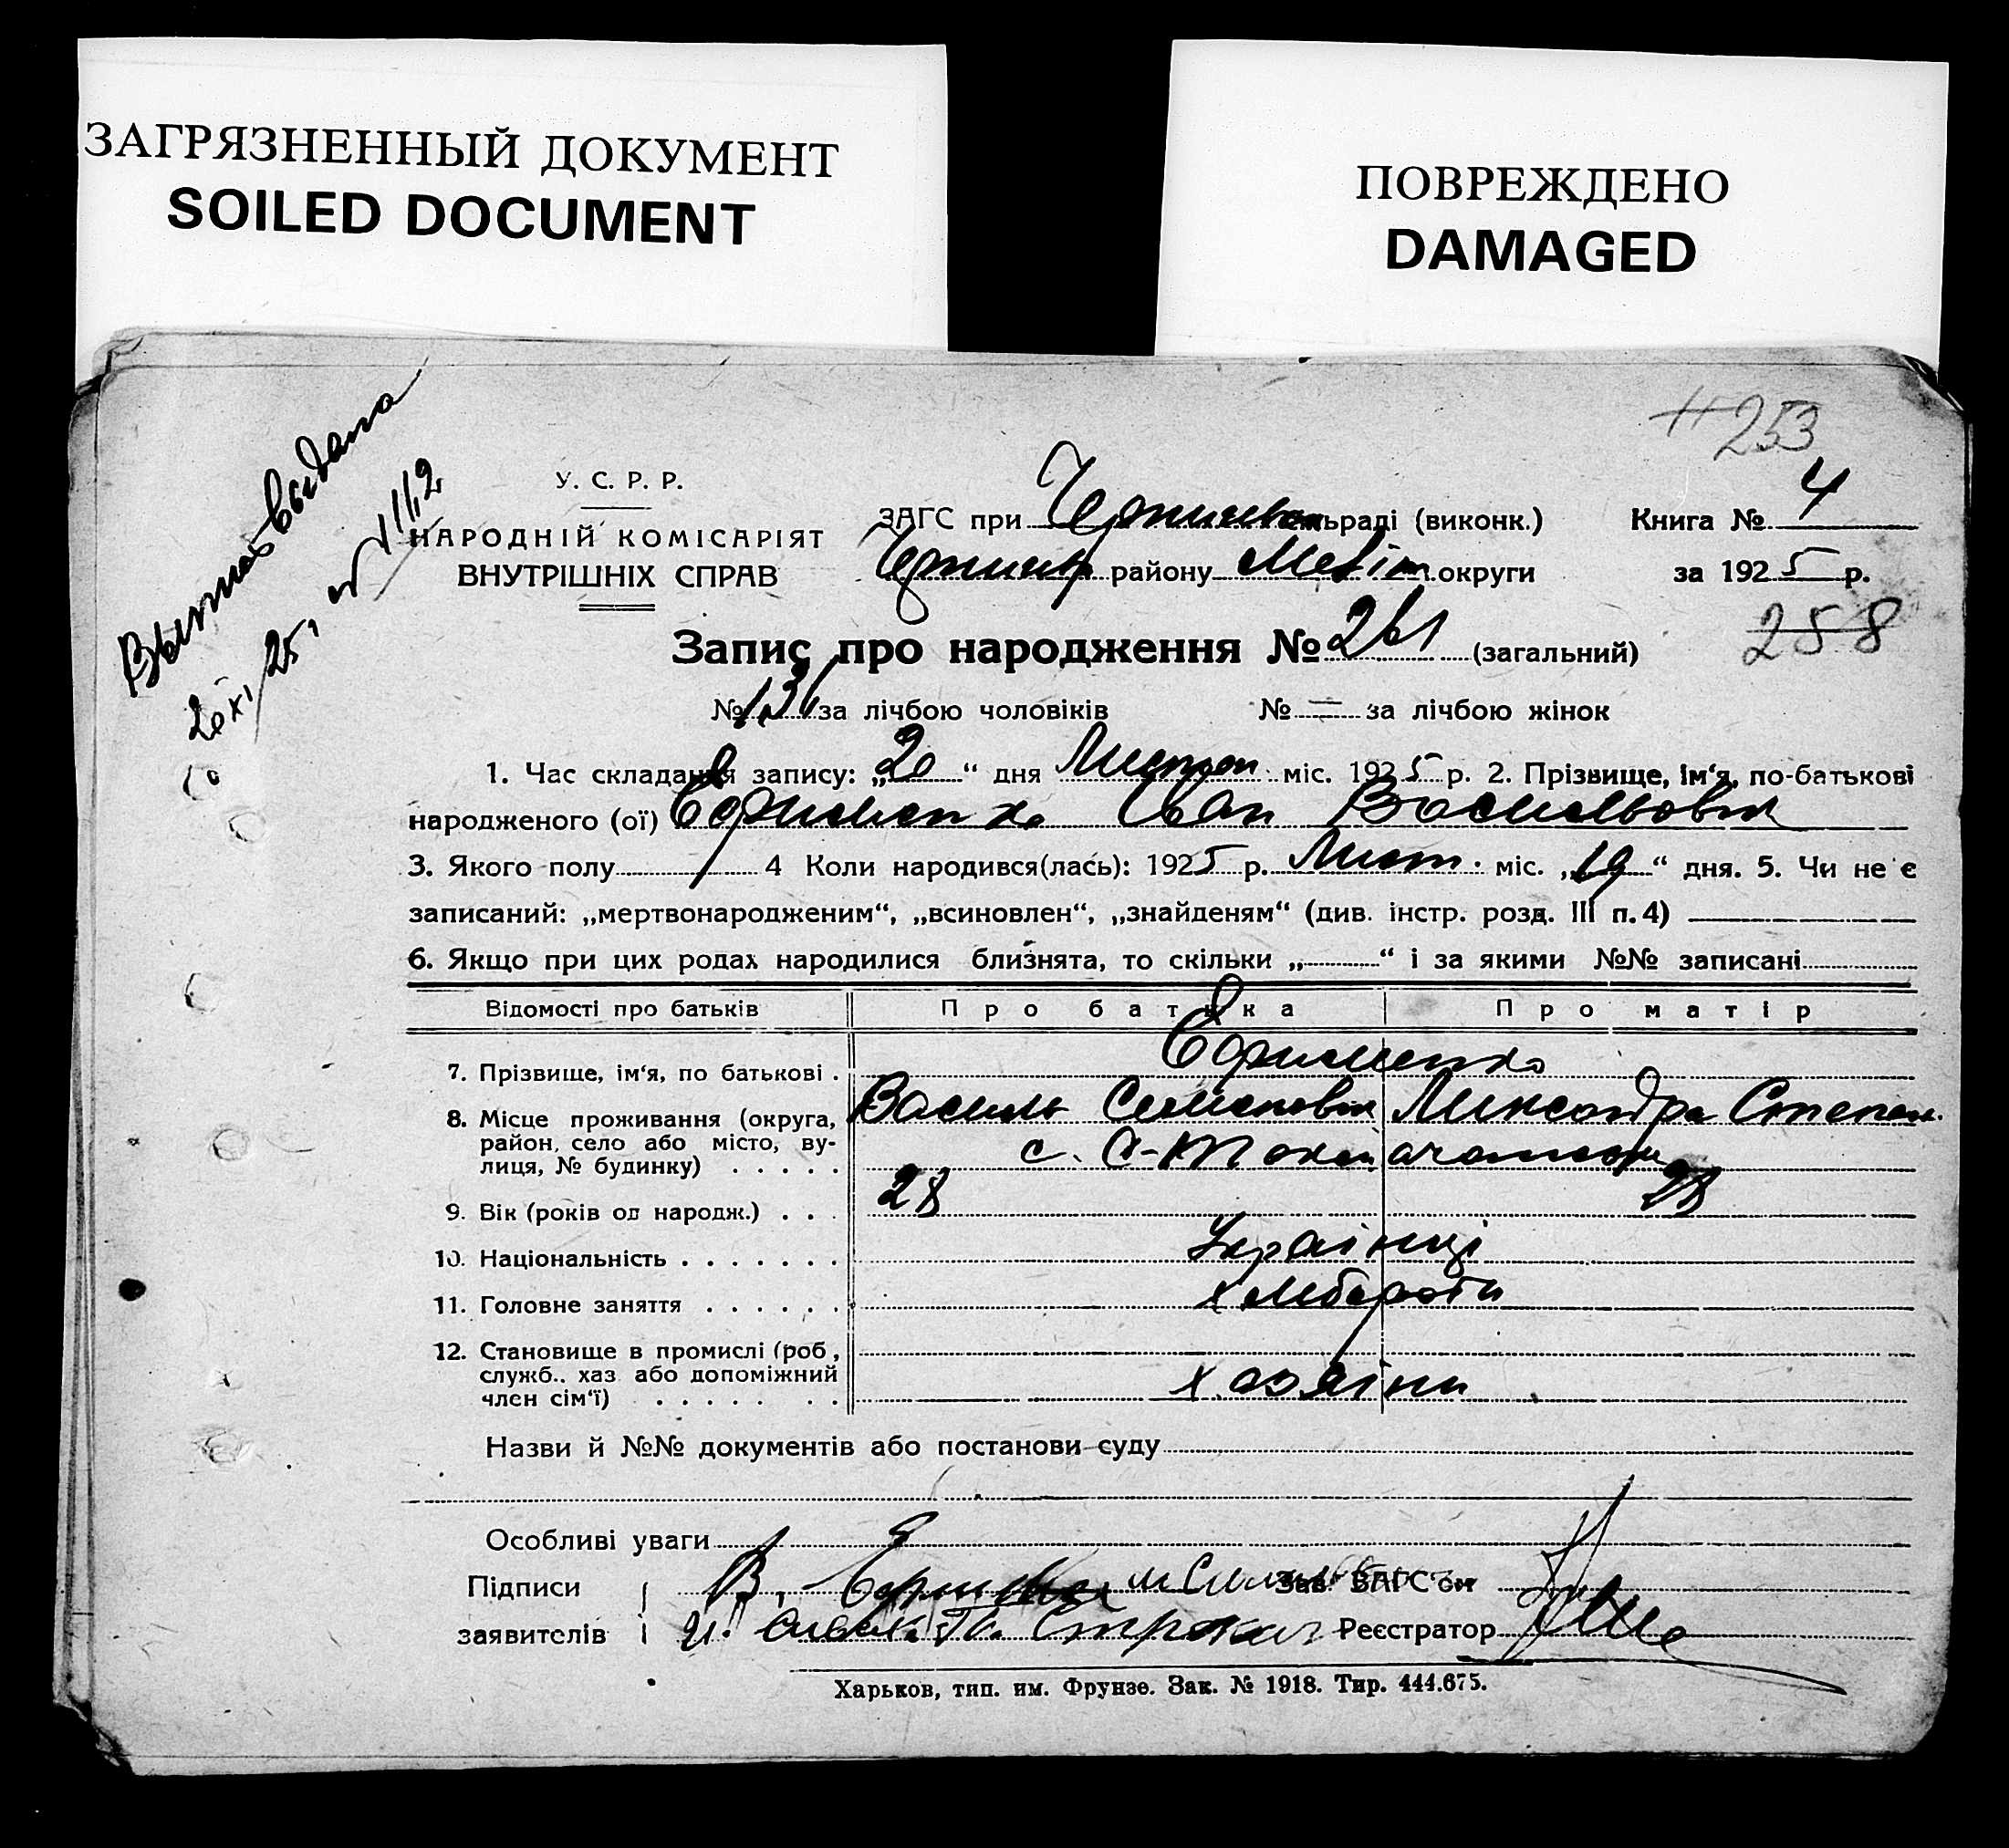 ЗАГРЯЗНЕННЫЙ ДОКУМЕНТ
SOILED DOCUMENT
ПОВРЕЖДЕНО
DAMAGED
253
Выпись выдана
20/XI 25, № 1112
У. С. Р. Р.
НАРОДНІЙ КОМІСАРІЯТ
ВНУТРІШНІХ СПРАВ
ЗАГС при сільраді (виконк.)
району Меліт округи
Книга № 4
за 1925 р.
258
Запис про народження № 261 (загальний)
№ 136 за лічбою чоловіків № — за лічбою жінок
1. Час складання запису: „20“ дня Листоп міс. 1925 р. 2. Прізвище, ім‘я, по-батькові
народженого (ої) Єфименко Іван Васильович
3. Якого полу 4 Коли народився(лась): 1925 р. Лист. міс. „19“ дня. 5. Чи не є
записаний: „мертвонародженим“, „всиновлен“, „знайденям“ (див. інстр. розд. III п. 4)
6. Якщо при цих родах народилися близнята, то скільки „ “ і за якими №№ записані
Відомості про батьків Про батька Про матір
7. Прізвище, ім‘я, по батькові . Єфименко
8. Місце проживання (округа, Василь Семенович Александра Степан.
район, село або місто, ву-
лиця, № будинку) . . . . . с.
9. Вік (років од народж.) . . . 28 28
10. Національність . . . . . . . Українці
11. Головне заняття . . . . . . хлібороби
12. Становище в промислі (роб,
служб.. хаз або допоміжний
член сім‘ї) . . . . . . . хозяіни
Назви й №№ документів або постанови суду
Особливі уваги
Підписи В. Зав. ЗАГС‘ом
заявителів Реєстратор
Харьков, тип. им. Фрунзе. Зак. № 1918. Тир. 444.675.